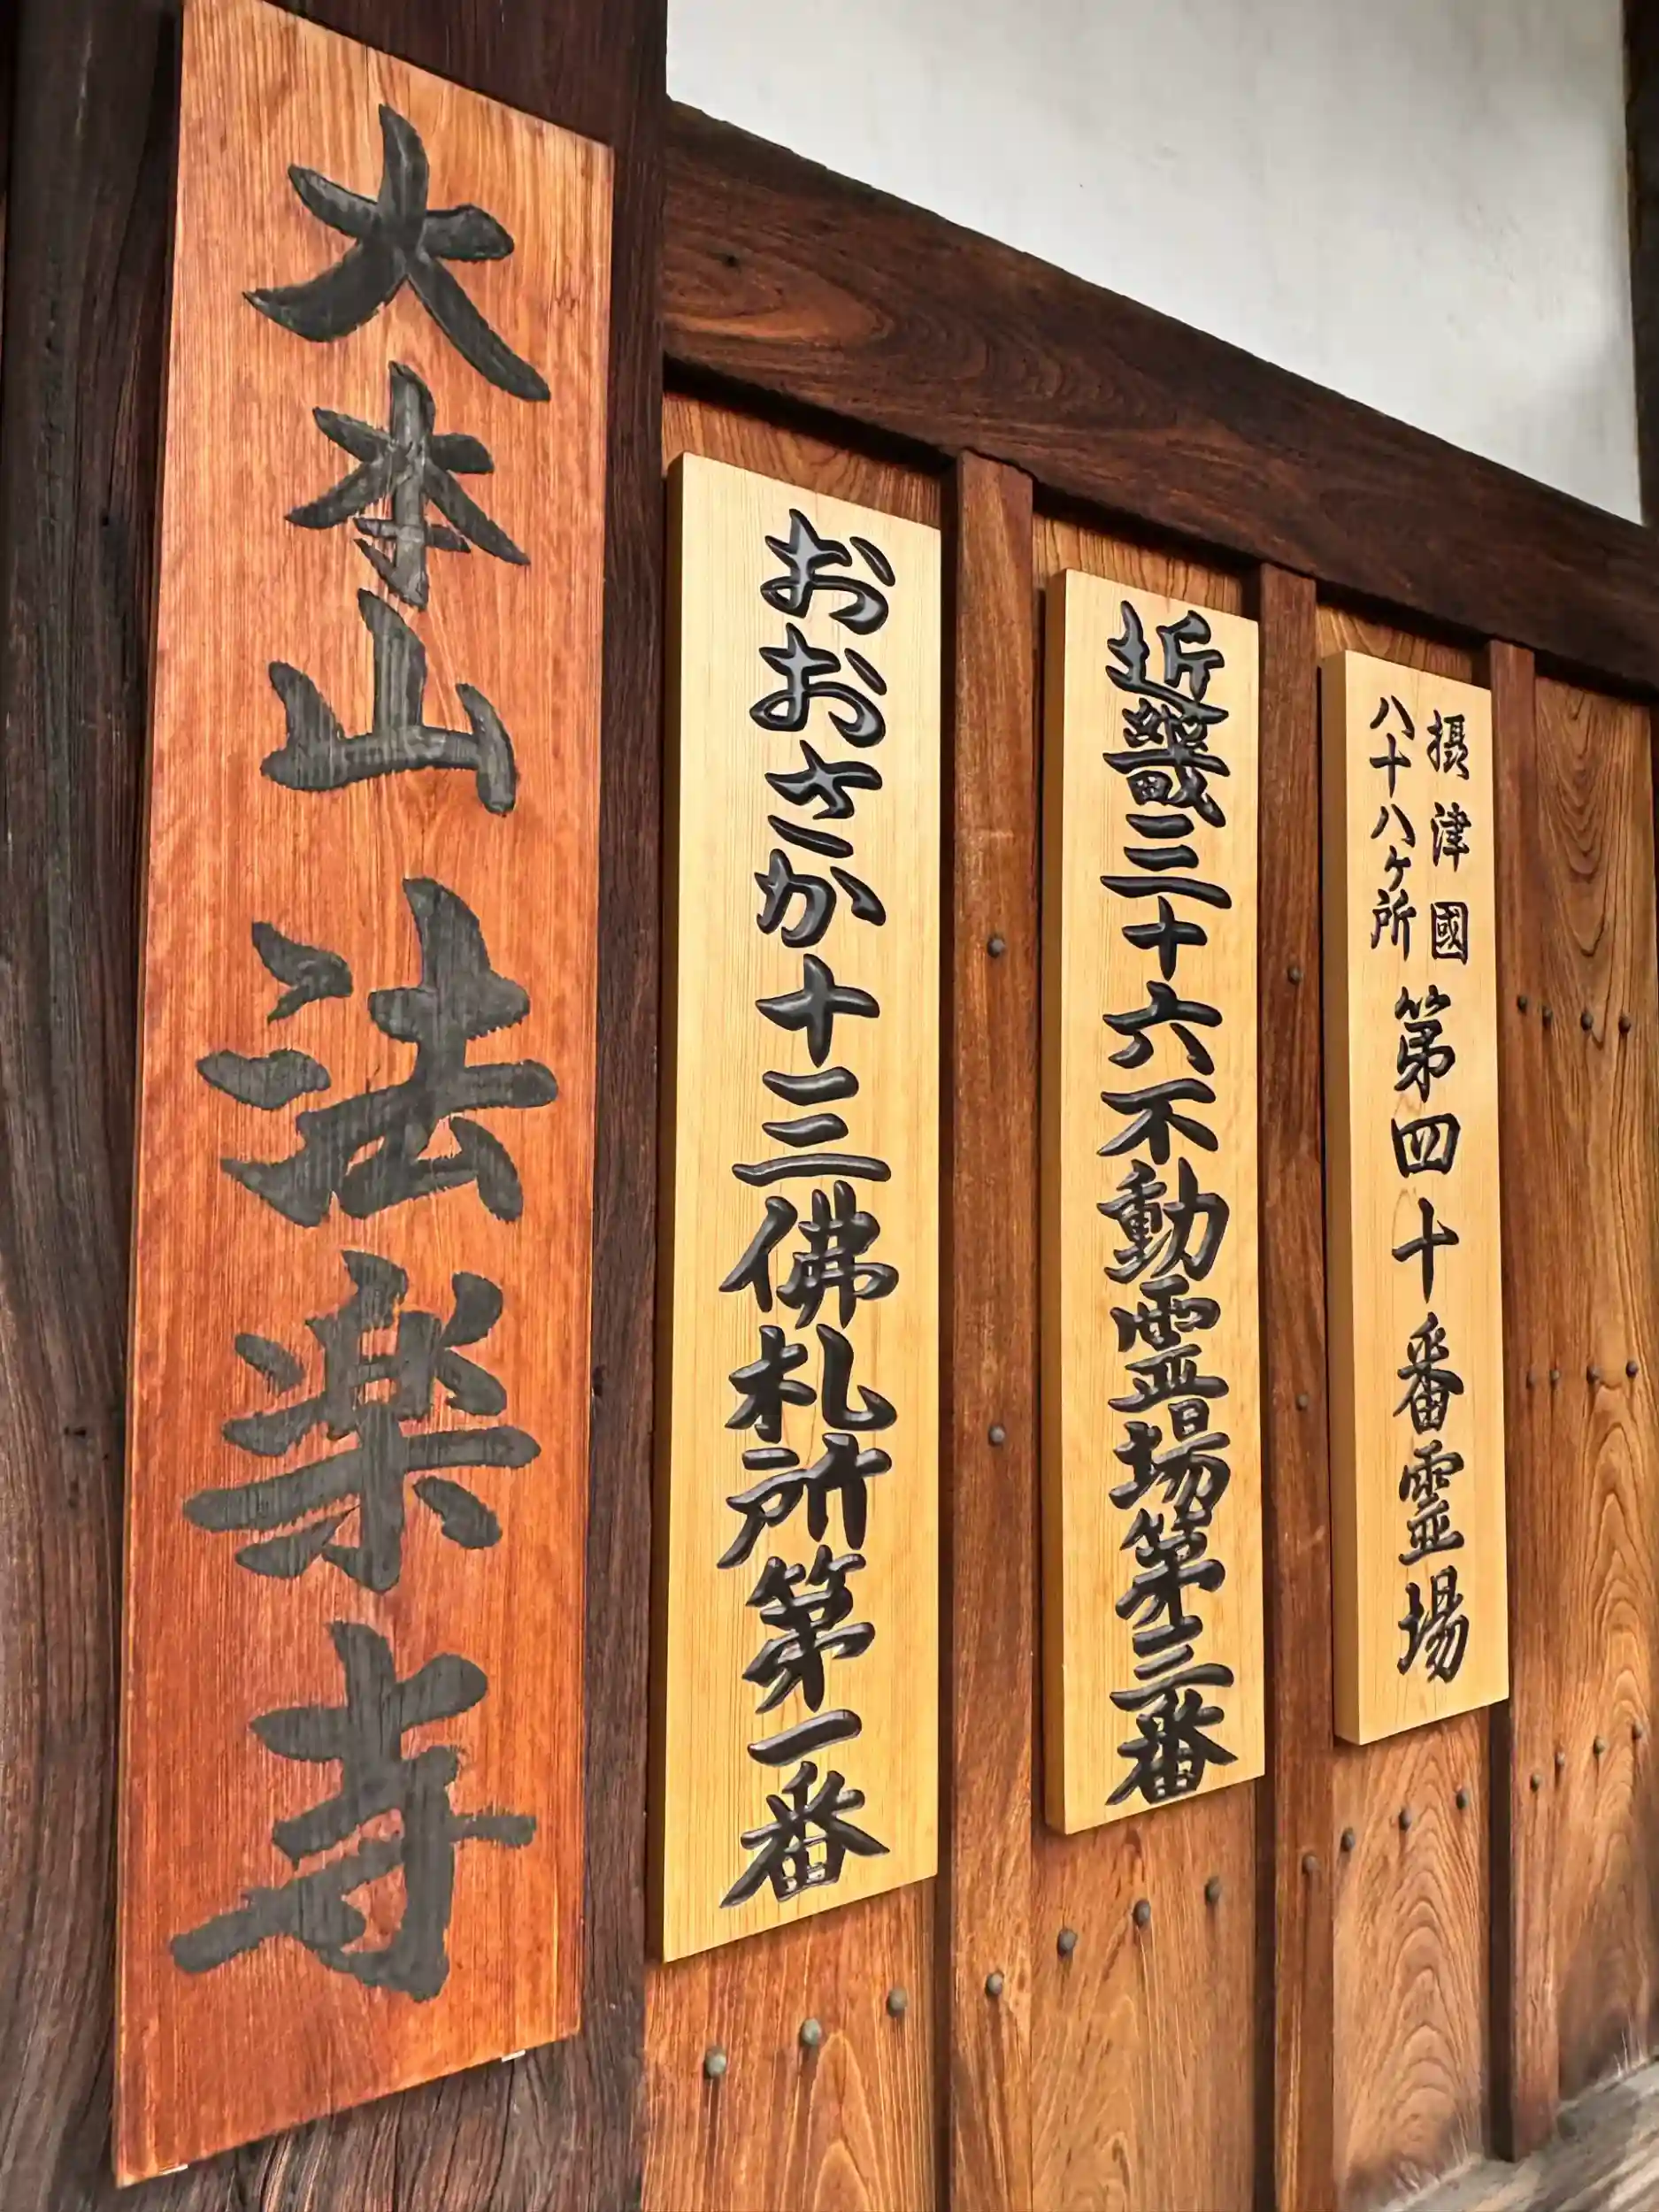 大本山 法楽寺
おおさか十三佛札所第一番
近畿三十六不動霊場第三番
摂津國
八十八ヶ所
第四十番霊場